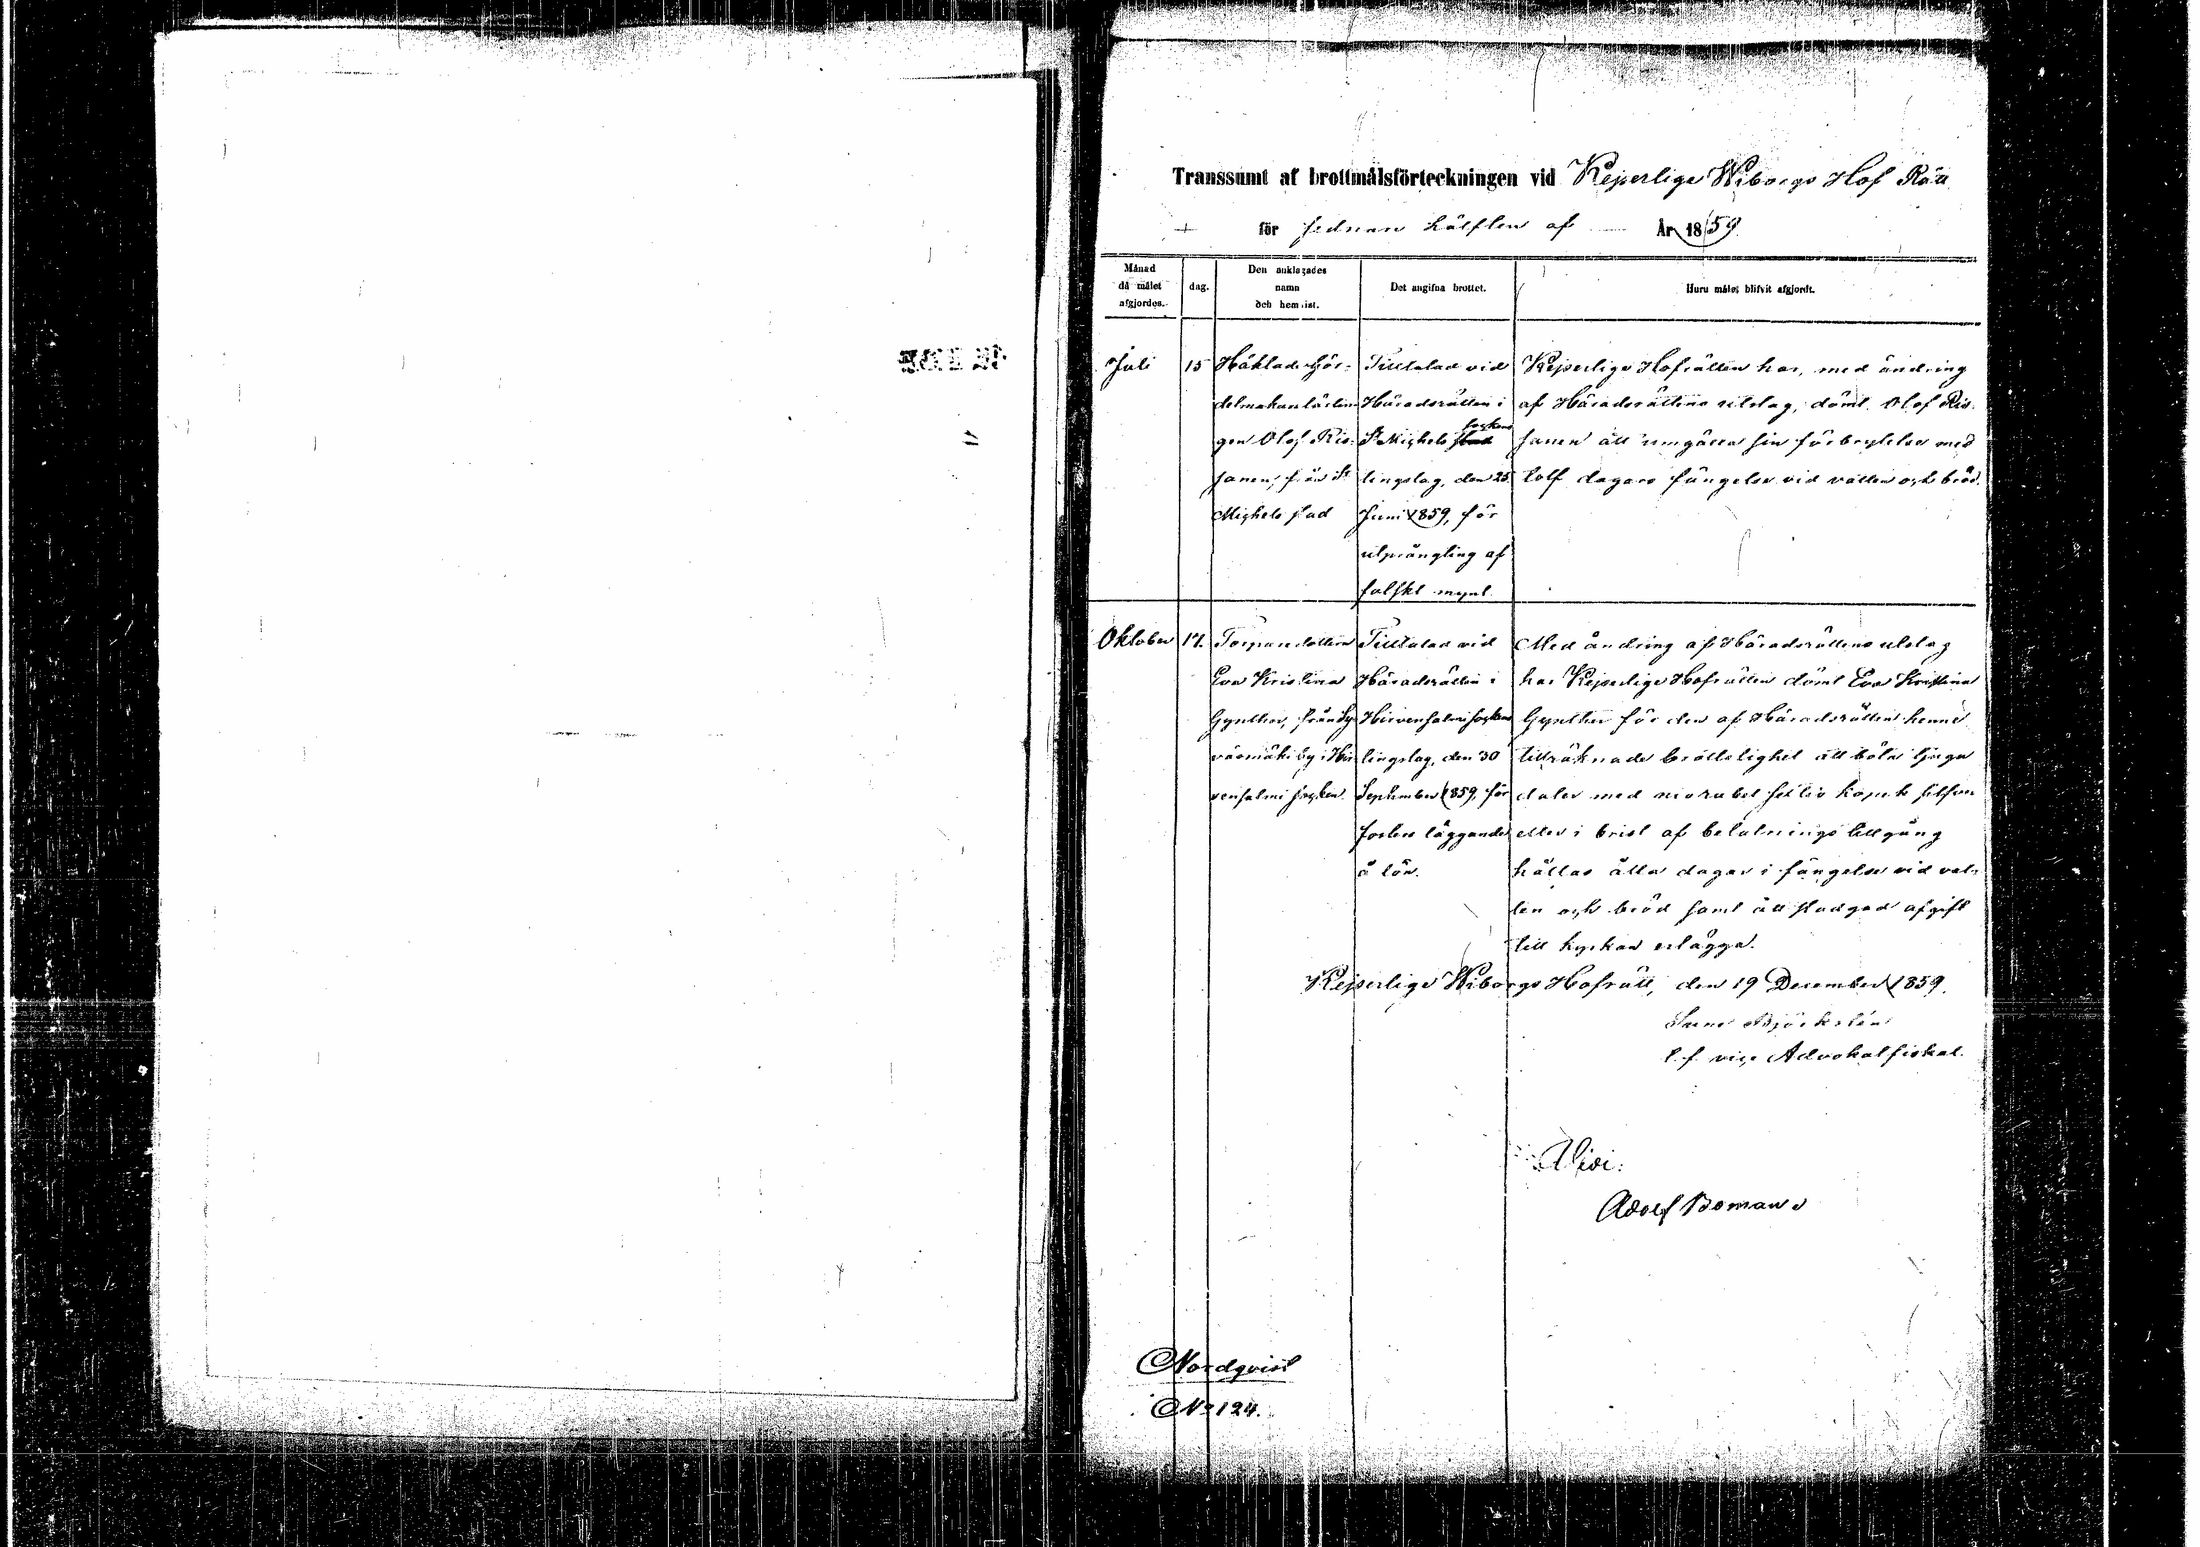 Transsumt af brottmålsförteckningen vid Kejserliga Wiborgs Hof Rätt
för sednare hälften af År 1859.
Månad då målet afgjordes.
dag.
Den anklagades namn och hemvist.
Det angifna brottet.
Huru målet blifvit afgjordt.
Juli
15
Häktade
gen Olof Ris-
sanen, från St
Michels stad
Tilltalad vid
Häradsrätten i
St Michels sockens
tingslag, den 25
Juni 1859, för
utprångling af
falskt mynt.
Kejserliga Hofrätten har, med ändring
af Häradsrättens utslag, dömt Olof Ris-
sanen att umgälla sin förbrytelse med
tolf dagars fängelse vid vatten och bröd.
Oktober
17.
Torparedottren
Eva Kristina
Gynther, från Sy-
väsmäki by i Hir-
vensalmi socken.
Tilltalad vid
Häradsrätten i
Hirvensalmi sockens
tingslag, den 30
September 1859, för
fosters läggande
å lön.
Med ändring af Häradsrättens utslag
har Kejserliga Hofrätten dömt Eva Kristina
Gynther för den af Häradsrätten henne
tillräknade brottslighet att böta tjugu
daler med nio rubel sextio kopek silfver
eller i brist af betalnings tillgång
hållas åtta dagar i fängelse vid vat-
ten och bröd samt att stadgad afgift
till kyrkan erlägga.
Kejserliga Wiborgs Hofrätt, den 19 December 1859.
Björkstén
t.f. vice Advokatfiskal.
Vivi:
Adolf Boman
Nordqvist
No 124.